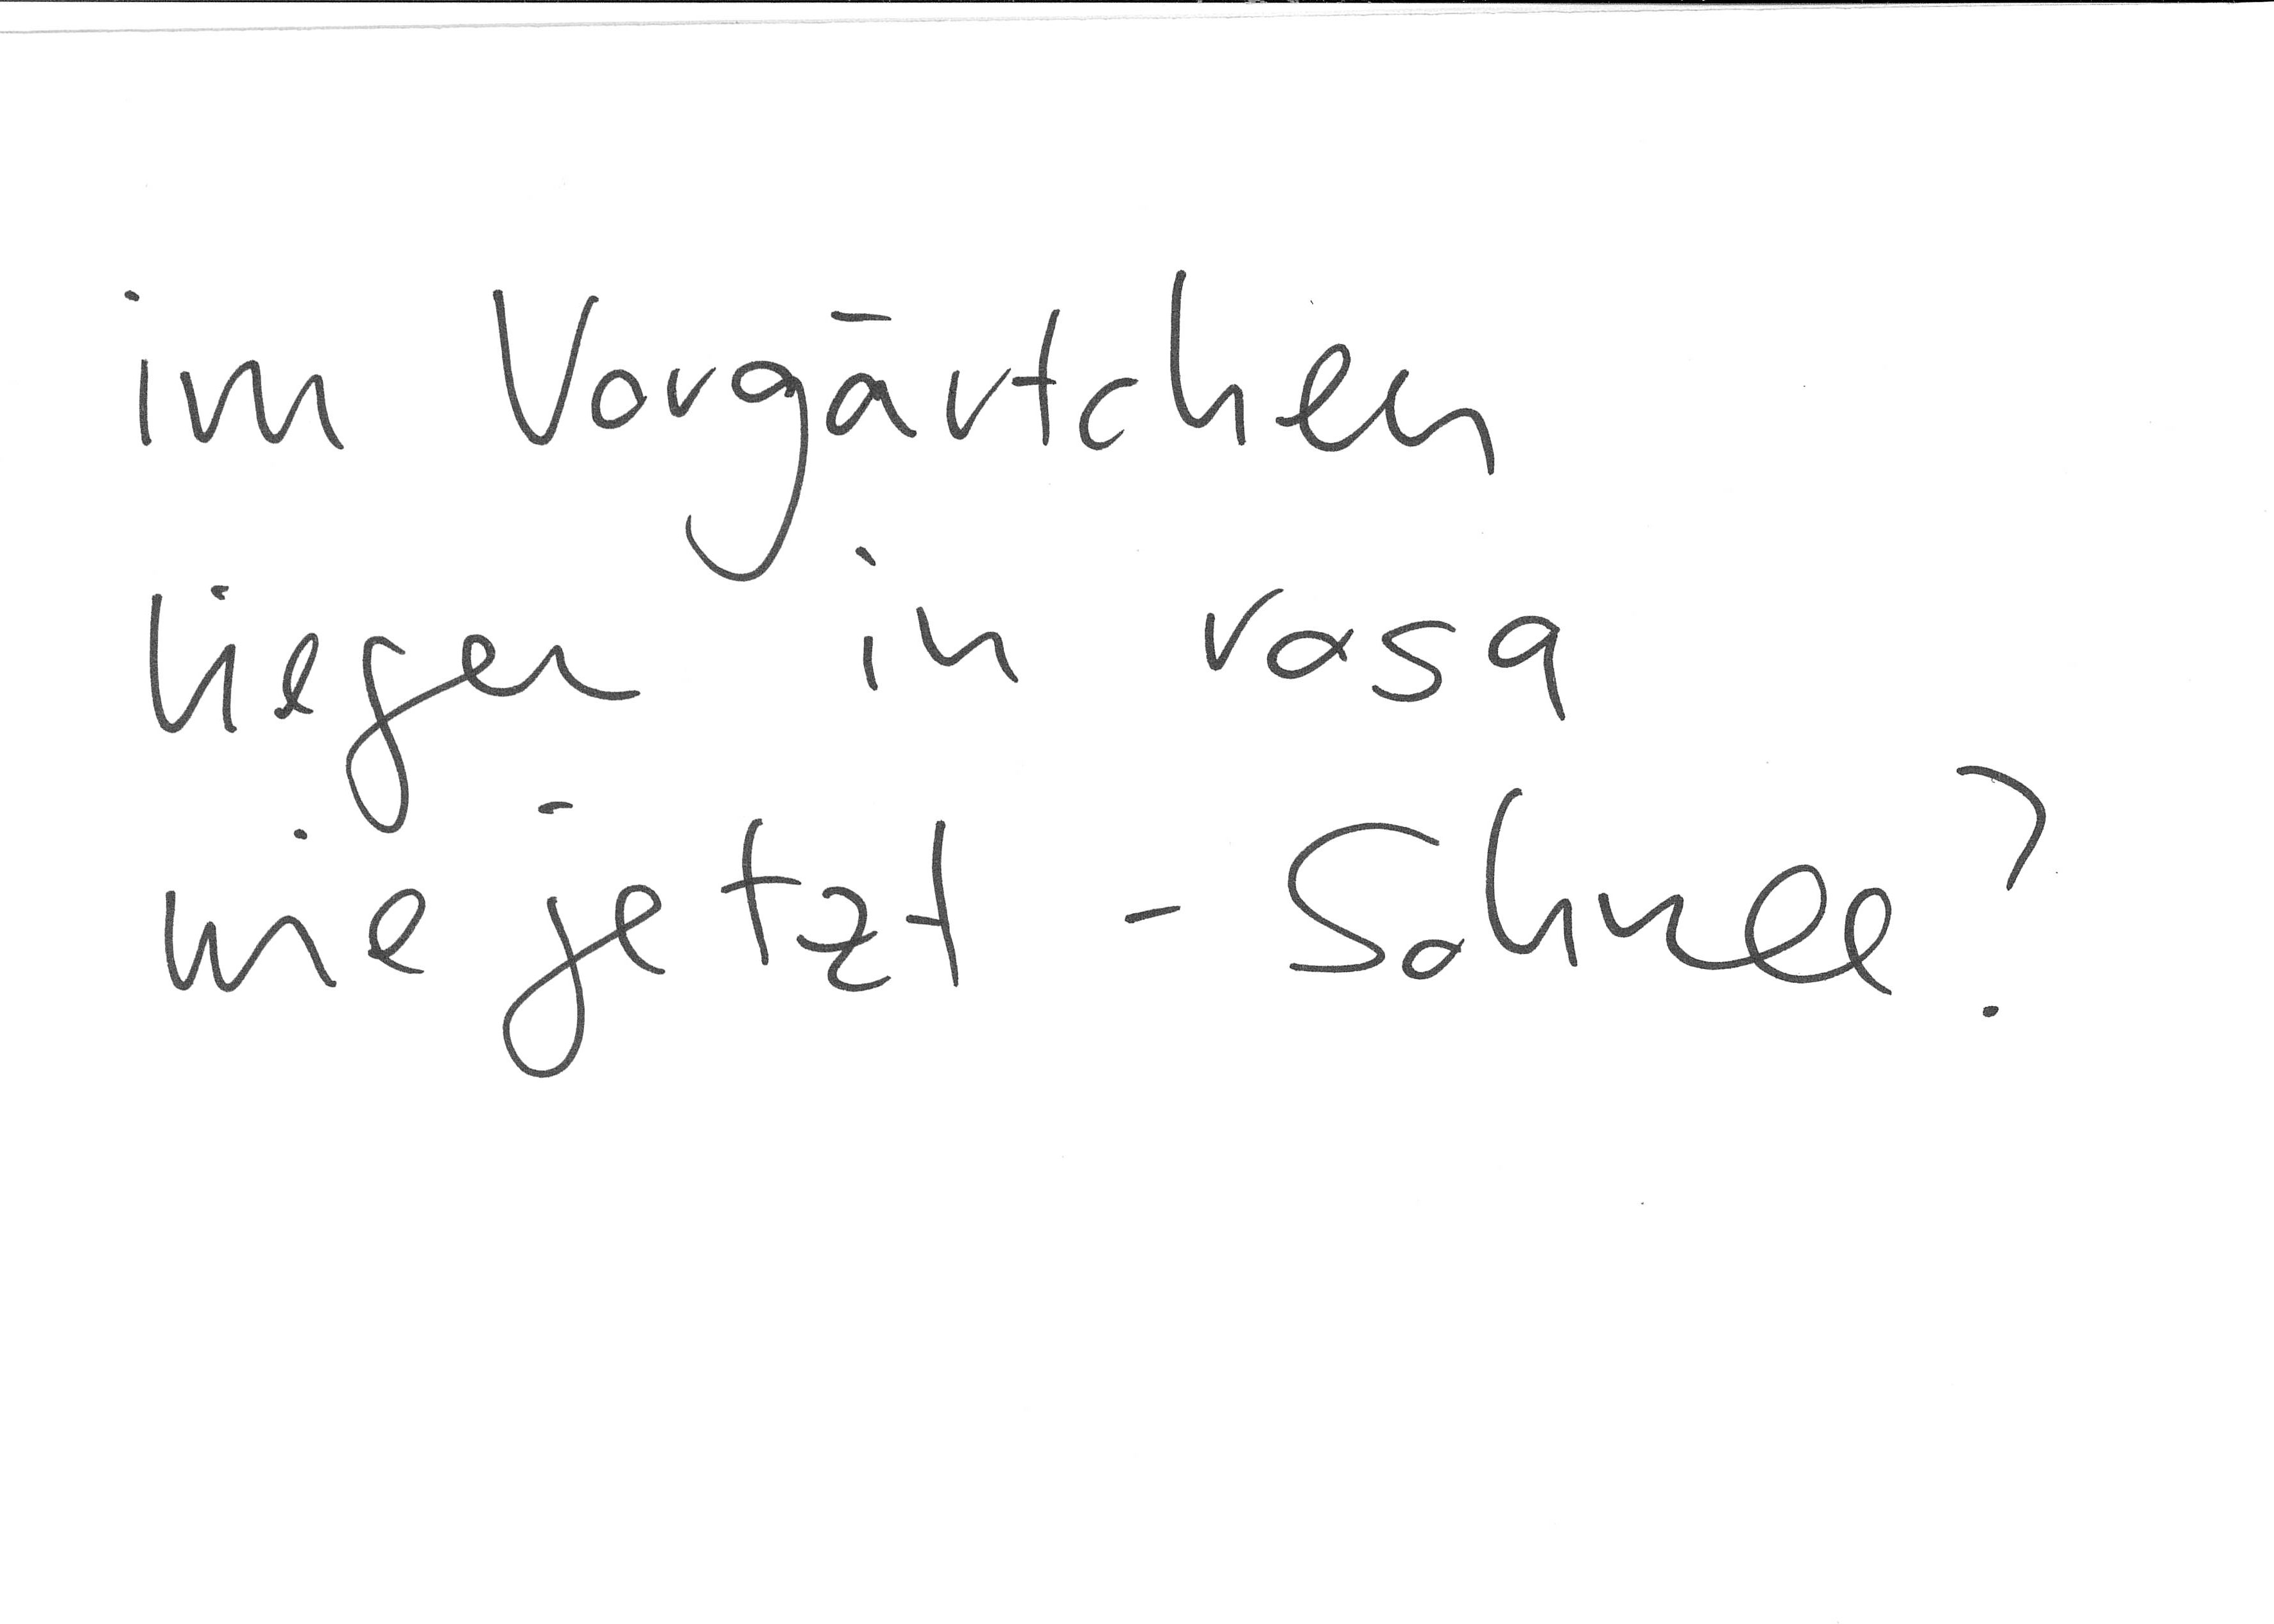 im Vorgärtchen
liegen in rosa
wie jetzt - Schnee?